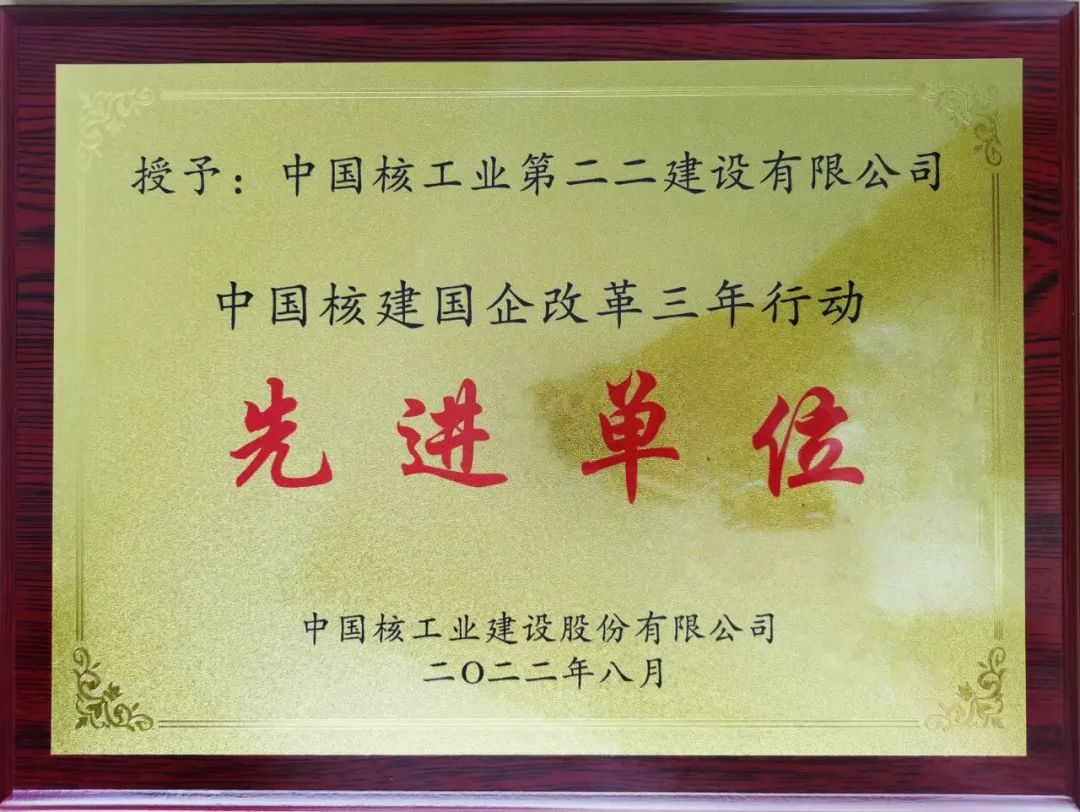 授予：中国核工业第二二建设有限公司
中国核建国企改革三年行动
先进单位
中国核工业建设股份有限公司
二〇二二年八月